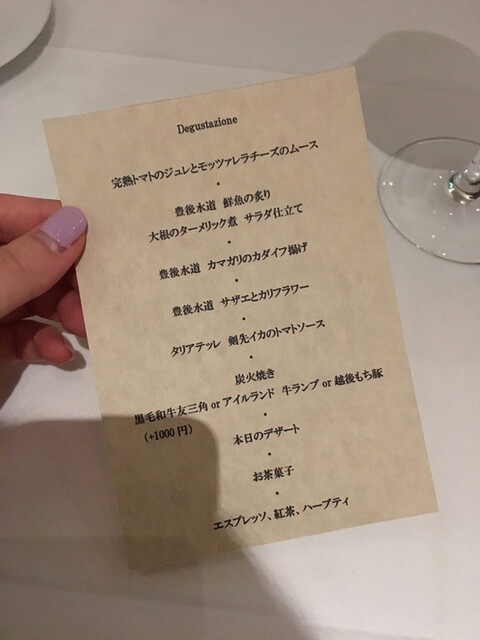 Degustazione
完熟トマトのジュレとモッツァレラチーズのムース
•
豊後水道 鮮魚の炙り
大根のターメリック煮 サラダ仕立て
•
豊後水道 カマガリのカダイフ揚げ
•
豊後水道 サザエとカリフラワー
•
タリアテッレ 剣先イカのトマトソース
•
炭火焼き
黒毛和牛友三角 or アイルランド 牛ランプ or 越後もち豚
(+1000 円)
•
本日のデザート
•
お茶菓子
•
エスプレッソ、紅茶、ハーブティ